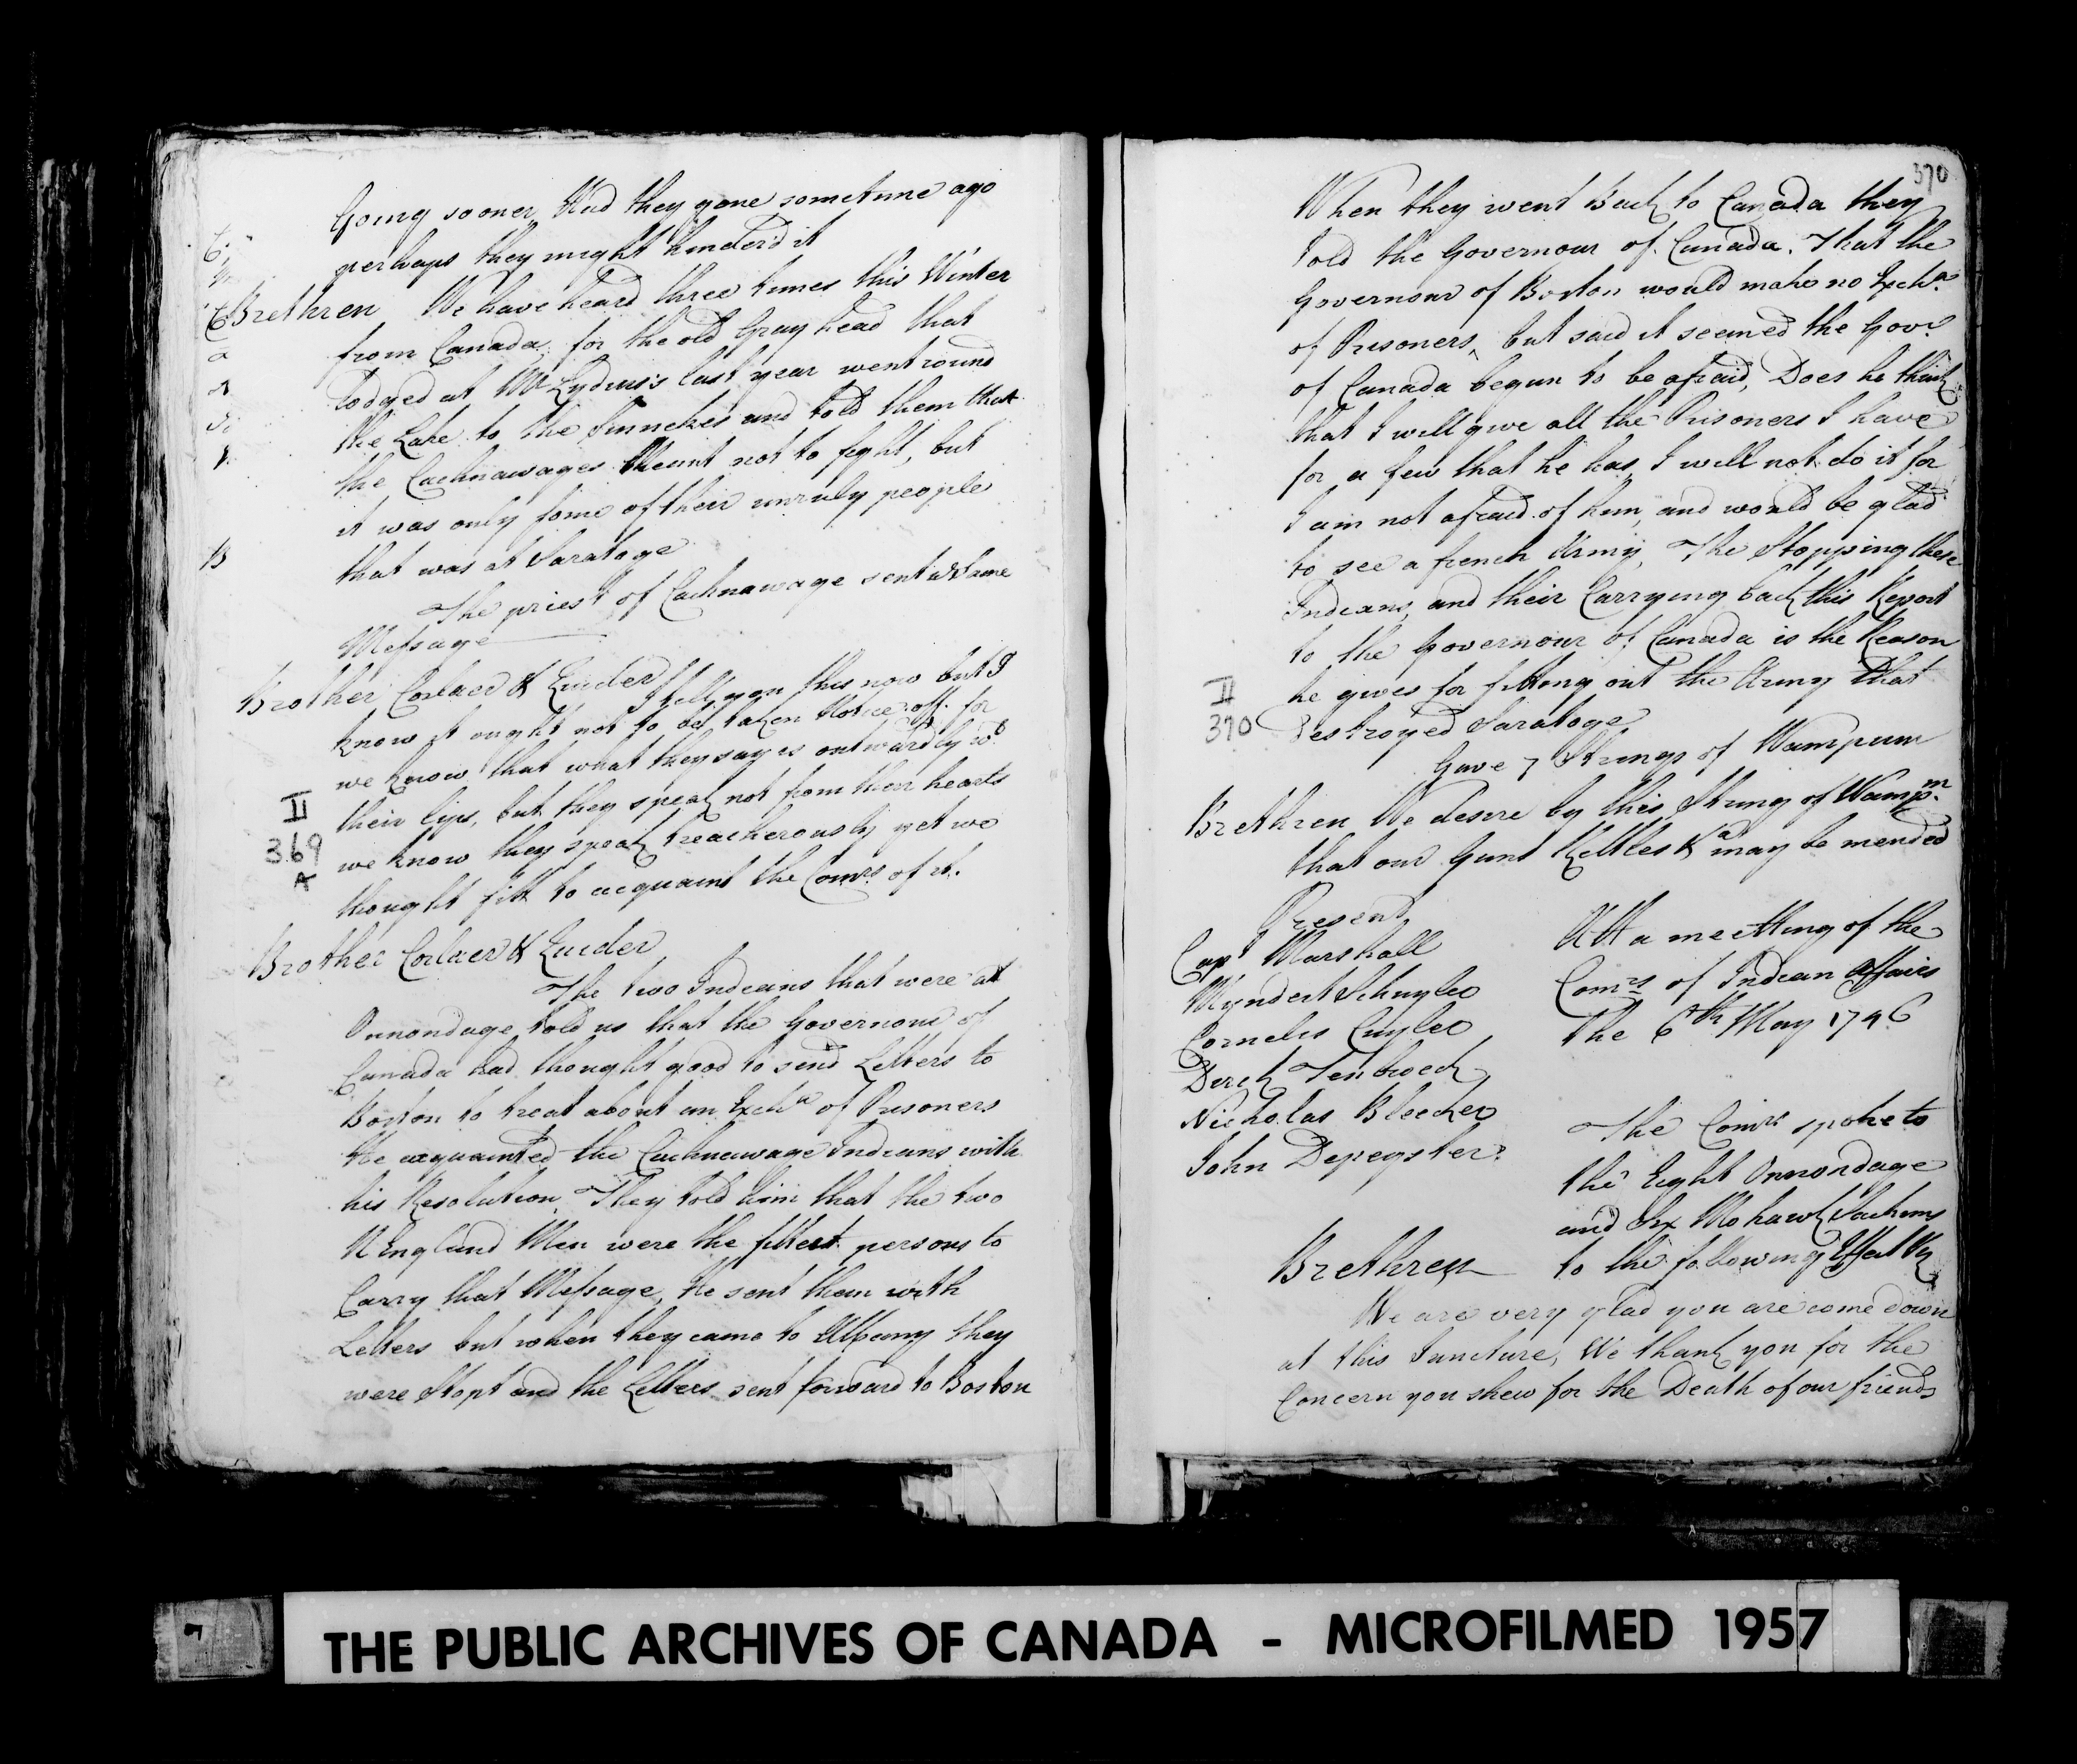 Going sooner, Had they gone sometime ago
perhaps they might hinder'd it
Brethren We have heard three times this Winter
from Canada, for the old Gray head that
Lodged at Mr Lydius's last year went round
the Lake to the Sinnekes and told them that
the Cachnawages Meant not to fight, but
it was only some of their unruly people
that was at Saratoge
The priest of Cachnawage sent ye Same
Message
Brother Corlaer & Quider
I tell you this now but I
know it ought not to be taken Notice off. for
we know that what they say is outwardly wth
their lips, but they speak not from their hearts
we know they speak treacherously yet we
thought fitt to acquaint the Comrs of it.
II
369
A
Brother Corlaer & Quider
The two Indians that were at
Onnondage told us that the Governour of
Canada had thought good to send Letters to
Boston to treat about an Excha of Prisoners
He acquainted the Cachnawage Indians with
his Resolution, They told him that the two
N England Men were the fittest persons to
Carry that Message, He sent them with
Letters but when they came to Albany they
were Stopt and the Letters sent forward to Boston
370
When they went Back to Canada they
Told the Governour of Canada. That the
Governour of Boston would make no Excha
of Prisoners, but said it seemed the Govr
of Canada begun to be afraid, Does he think
that I will give all the Prisoners I have
for a few that he has, I will not do it for
I am not afraid of him, and would be glad
to see a french Army, The Stopping these
Indians, and their Carrying back this Report
to the Governour of Canada is the Reason
he gives for fitting out the Army that
Destroyed Saratoge
II
370
Gave 7 Strings of Wampum
Brethren We desire by this String of Wampm
that our Guns Kettles &a may be mended
Present
Capt Marshall
Myndert Schuyler
Cornelis Cuyler
Derck Tenbroeck
Nicholas Bleecker
John Depeyster
Att a meetting of the
Comrs of Indian Affairs
the 6th May 1746
The Comrs spoke to
the Eight Onnondage
and Six Mohawk Sachims
to the following Effect Vizt
Brethren
We are very glad you are come down
at this Juncture, We thank you for the
Concern you shew for the Death of our friends
THE PUBLIC ARCHIVES OF CANADA - MICROFILMED 1957